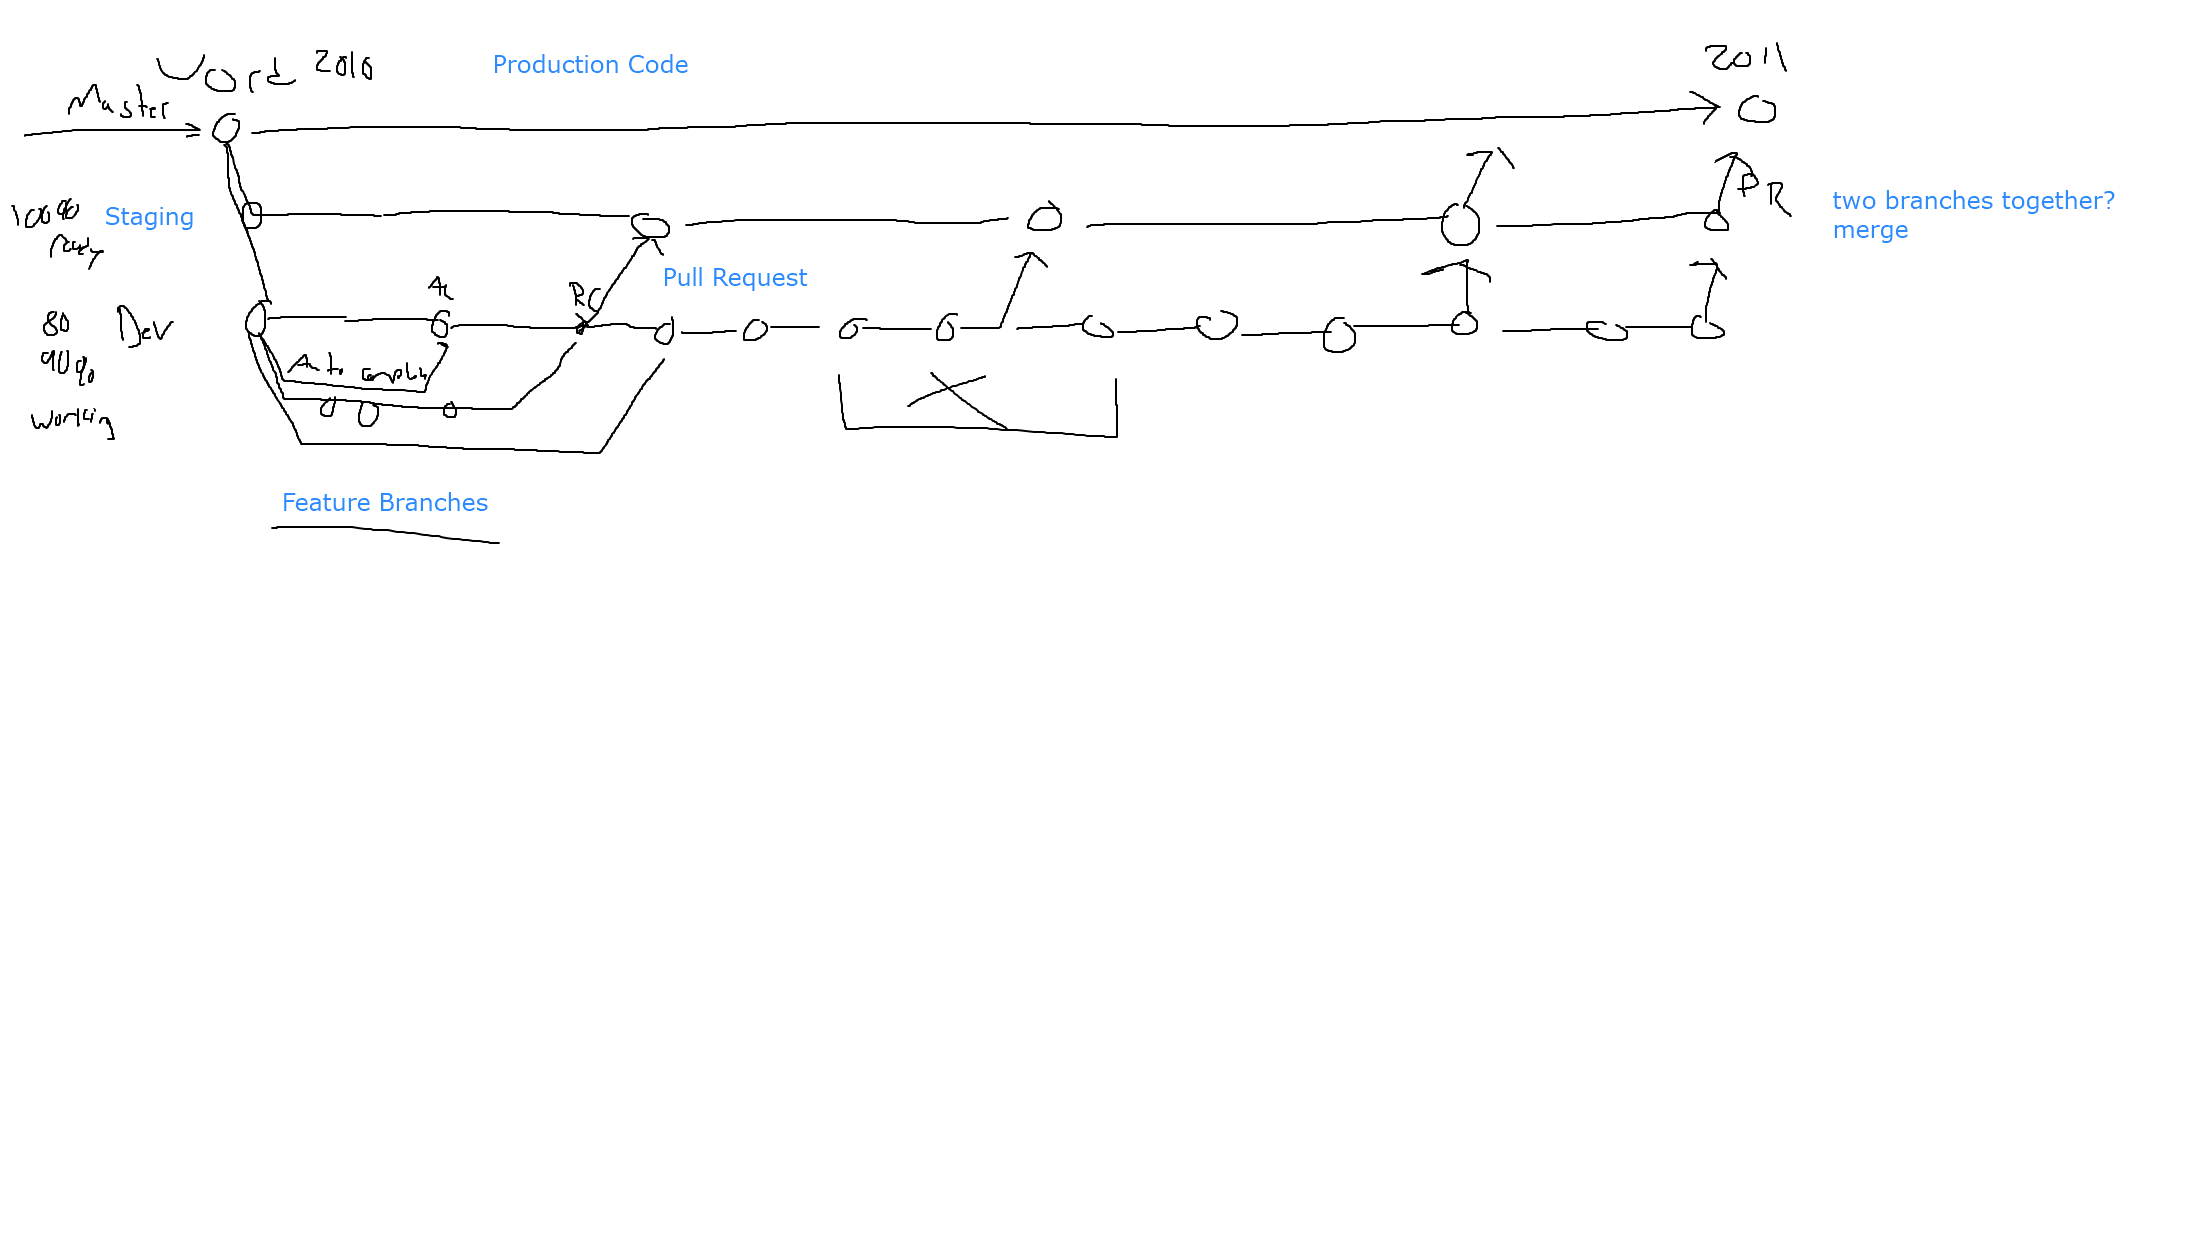 Word 2010
Production Code
2011
Master
100%
ready
Staging
PR
two branches together?
merge
Pull Request
AC
RC
80
90%
working
Dev
Auto
Feature Branches